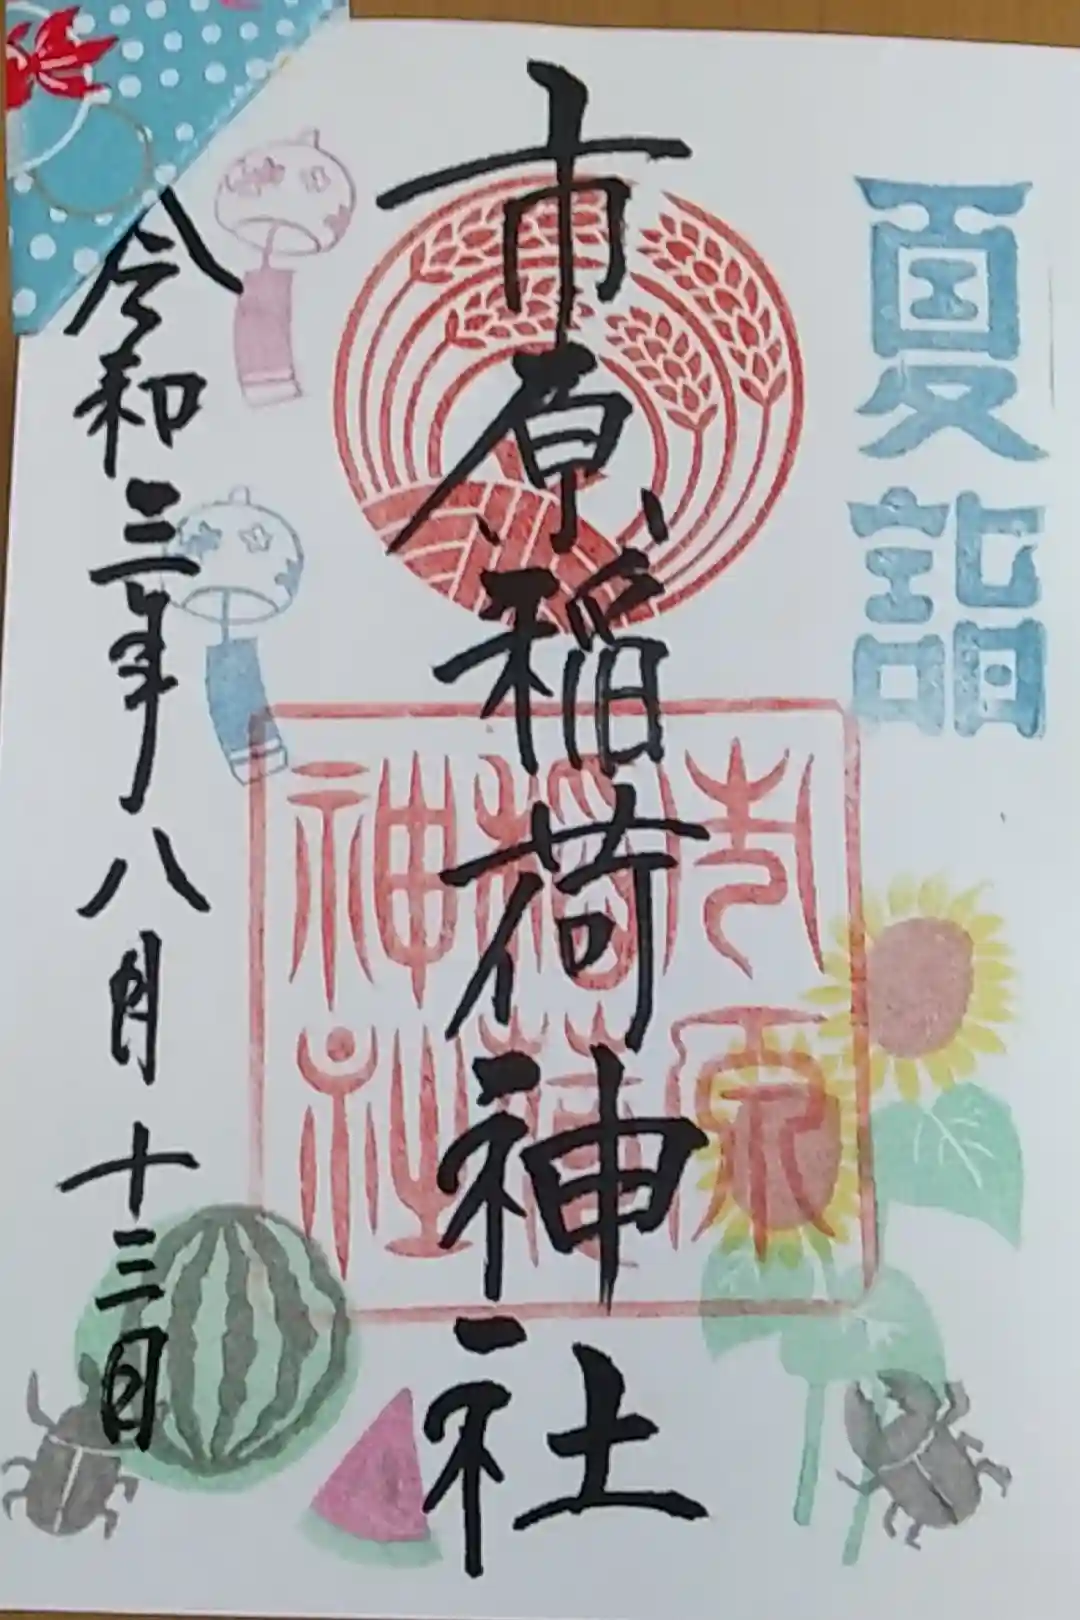 夏詣
市原稲荷神社
市原
稲荷
神社
令和三年八月十三日